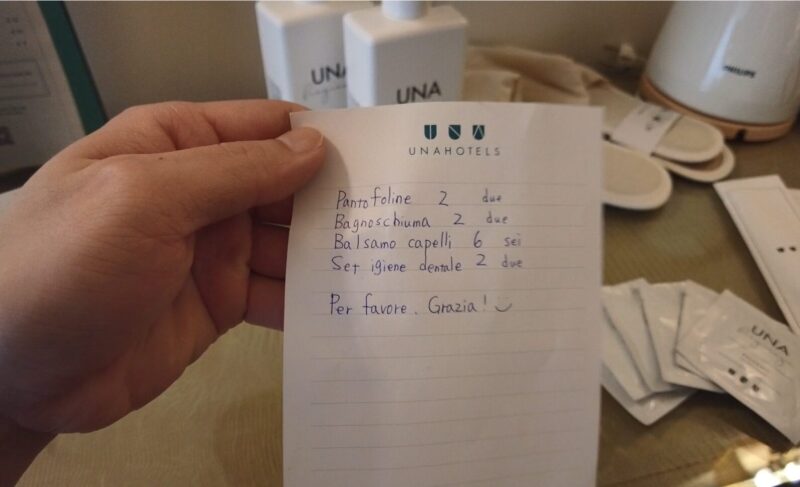 UNA
UNA
PHILIPS
UNA
UNAHOTELS
Pantofoline 2 due
Bagnoschiuma 2 due
Balsamo capelli 6 sei
Set igiene dentale 2 due
Per favore. Grazia!
UNA